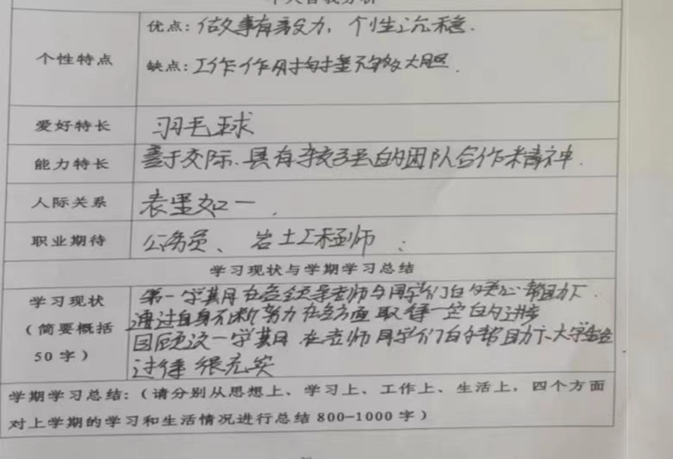 个人自我分析
个性特点
优点：做事有毅力，个性沉稳.
缺点：工作作风 不够大胆.
爱好特长 羽毛球
能力特长 善于交际、具有较强的团队合作精神.
人际关系 表里如一.
职业期待 公务员、岩土工程师.
学习现状与学期学习总结
学习现状
（简要概括
50字）
第一学期在各领导老师与同学们的关心帮助下.
通过自身不断努力在各方面取得一定的进步
回顾这一学期在老师同学们的帮助下、大学生活
过得很充实
学期学习总结：（请分别从思想上、学习上、工作上、生活上，四个方面
对上学期的学习和生活情况进行总结800-1000字）